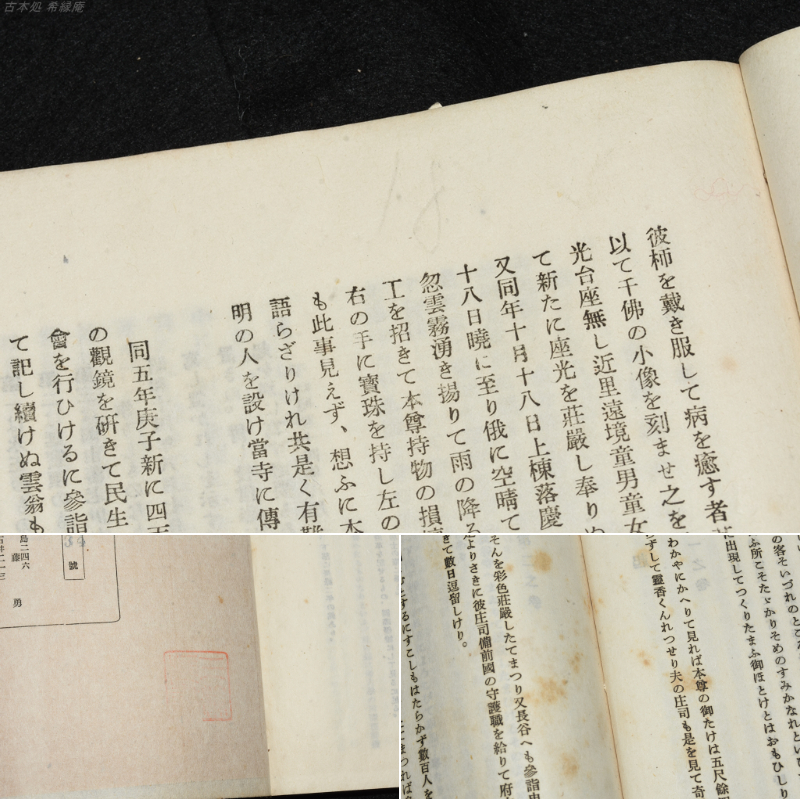 古本処 希縁庵
彼柿を戴き服して病を癒す者
以て千佛の小像を刻ませ之を
光台座無し近里遠境童男童女
て新たに座光を莊嚴し奉りぬ
又同年十月十八日上棟落慶
十八日曉に至り俄に空晴て
忽雲霧湧き揚りて雨の降る
工を招きて本尊持物の損
右の手に寶珠を持し左の
も此事見えず、想ふに本
語らざりけれ共是く有難
明の人を設け當寺に傳
同五年庚子新に四五
の觀鏡を研きて民生
會を行ひけるに參詣
て記し續けぬ雲翁も
號
島二四六
藤 勇
の客そいづれのところ
ふ所こそたゞかりそめのすみかなれといひ
に出現してつくりたまふ御ほとけとはおもひしり
わかやにかへりて見れば本尊の御たけは五尺餘
ずして靈香くんれつせり夫の庄司も是を見て奇
そんを彩色莊嚴したてまつり又長谷へも參詣申
よりさきに彼庄司備前國の守護職を給りて府
きて數日逗留しけり。
むとするにすこしもはたらかず數百人を